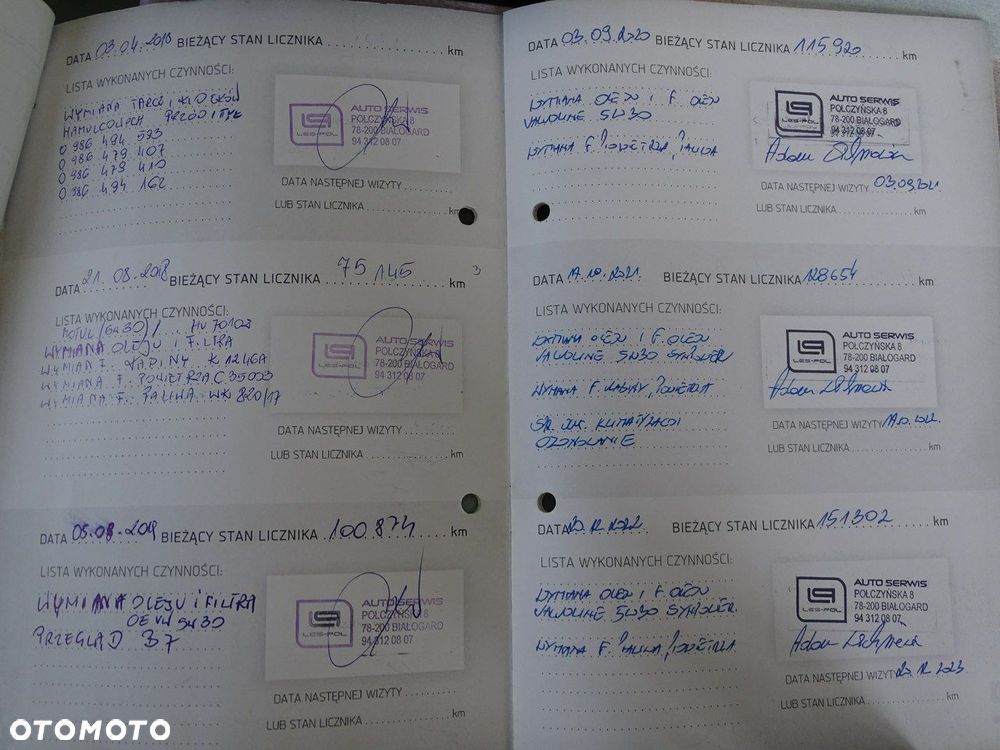 DATA 03.04.2018 BIEŻĄCY STAN LICZNIKA km
LISTA WYKONANYCH CZYNNOŚCI:
WYMIANA TARCZ I KLOCKÓW
HAMULCOWYCH PRZÓD I TYŁ
0 986 494 593
0 986 479 407
0 986 479 410
0 986 494 162
LES-POL
AUTO SERWIS
POŁCZYŃSKA 8
78-200 BIAŁOGARD
94 312 08 07
DATA NASTĘPNEJ WIZYTY
LUB STAN LICZNIKA km
DATA 21.08.2018 BIEŻĄCY STAN LICZNIKA 75 145 km
LISTA WYKONANYCH CZYNNOŚCI:
MOTUL (5W30) HU 7010z
WYMIANA OLEJU I FILTRA
WYMIANA F. KABINY K 1246A
WYMIANA F. POWIETRZA C 35003
WYMIANA F. PALIWA WK 820/17
LES-POL
AUTO SERWIS
POŁCZYŃSKA 8
78-200 BIAŁOGARD
94 312 08 07
DATA NASTĘPNEJ WIZYTY
LUB STAN LICZNIKA km
DATA 05.08.2019 BIEŻĄCY STAN LICZNIKA 100 874 km
LISTA WYKONANYCH CZYNNOŚCI:
WYMIANA OLEJU I FILTRA
5W30
PRZEGLĄD B7
LES-POL
AUTO SERWIS
POŁCZYŃSKA 8
78-200 BIAŁOGARD
94 312 08 07
DATA NASTĘPNEJ WIZYTY
LUB STAN LICZNIKA km
DATA 03.09.2020 BIEŻĄCY STAN LICZNIKA 115920 km
LISTA WYKONANYCH CZYNNOŚCI:
WYMIANA OLEJU I F. OLEJU
VALVOLINE 5W30
WYMIANA F. POWIETRZA, PALIWA
LES-POL
AUTO SERWIS
POŁCZYŃSKA 8
78-200 BIAŁOGARD
94 312 08 07
Adam
DATA NASTĘPNEJ WIZYTY 03.09.2021
LUB STAN LICZNIKA km
DATA 19.10.2021. BIEŻĄCY STAN LICZNIKA 128654 km
LISTA WYKONANYCH CZYNNOŚCI:
WYMIANA OLEJU I F. OLEJU
VALVOLINE 5W30 SYNPOWER
WYMIANA F. KABINY, POWIETRZA
KLIMATYZACJI
OZONOWANIE
LES-POL
AUTO SERWIS
POŁCZYŃSKA 8
78-200 BIAŁOGARD
94 312 08 07
Adam
DATA NASTĘPNEJ WIZYTY 19.10.2022.
LUB STAN LICZNIKA km
DATA 20.12.2022 BIEŻĄCY STAN LICZNIKA 151302 km
LISTA WYKONANYCH CZYNNOŚCI:
WYMIANA OLEJU I F. OLEJU
VALVOLINE 5W30 SYNPOWER.
WYMIANA F. PALIWA, POWIETRZA
LES-POL
AUTO SERWIS
POŁCZYŃSKA 8
78-200 BIAŁOGARD
94 312 08 07
Adam
DATA NASTĘPNEJ WIZYTY 20.12.2023
LUB STAN LICZNIKA km
OTOMOTO